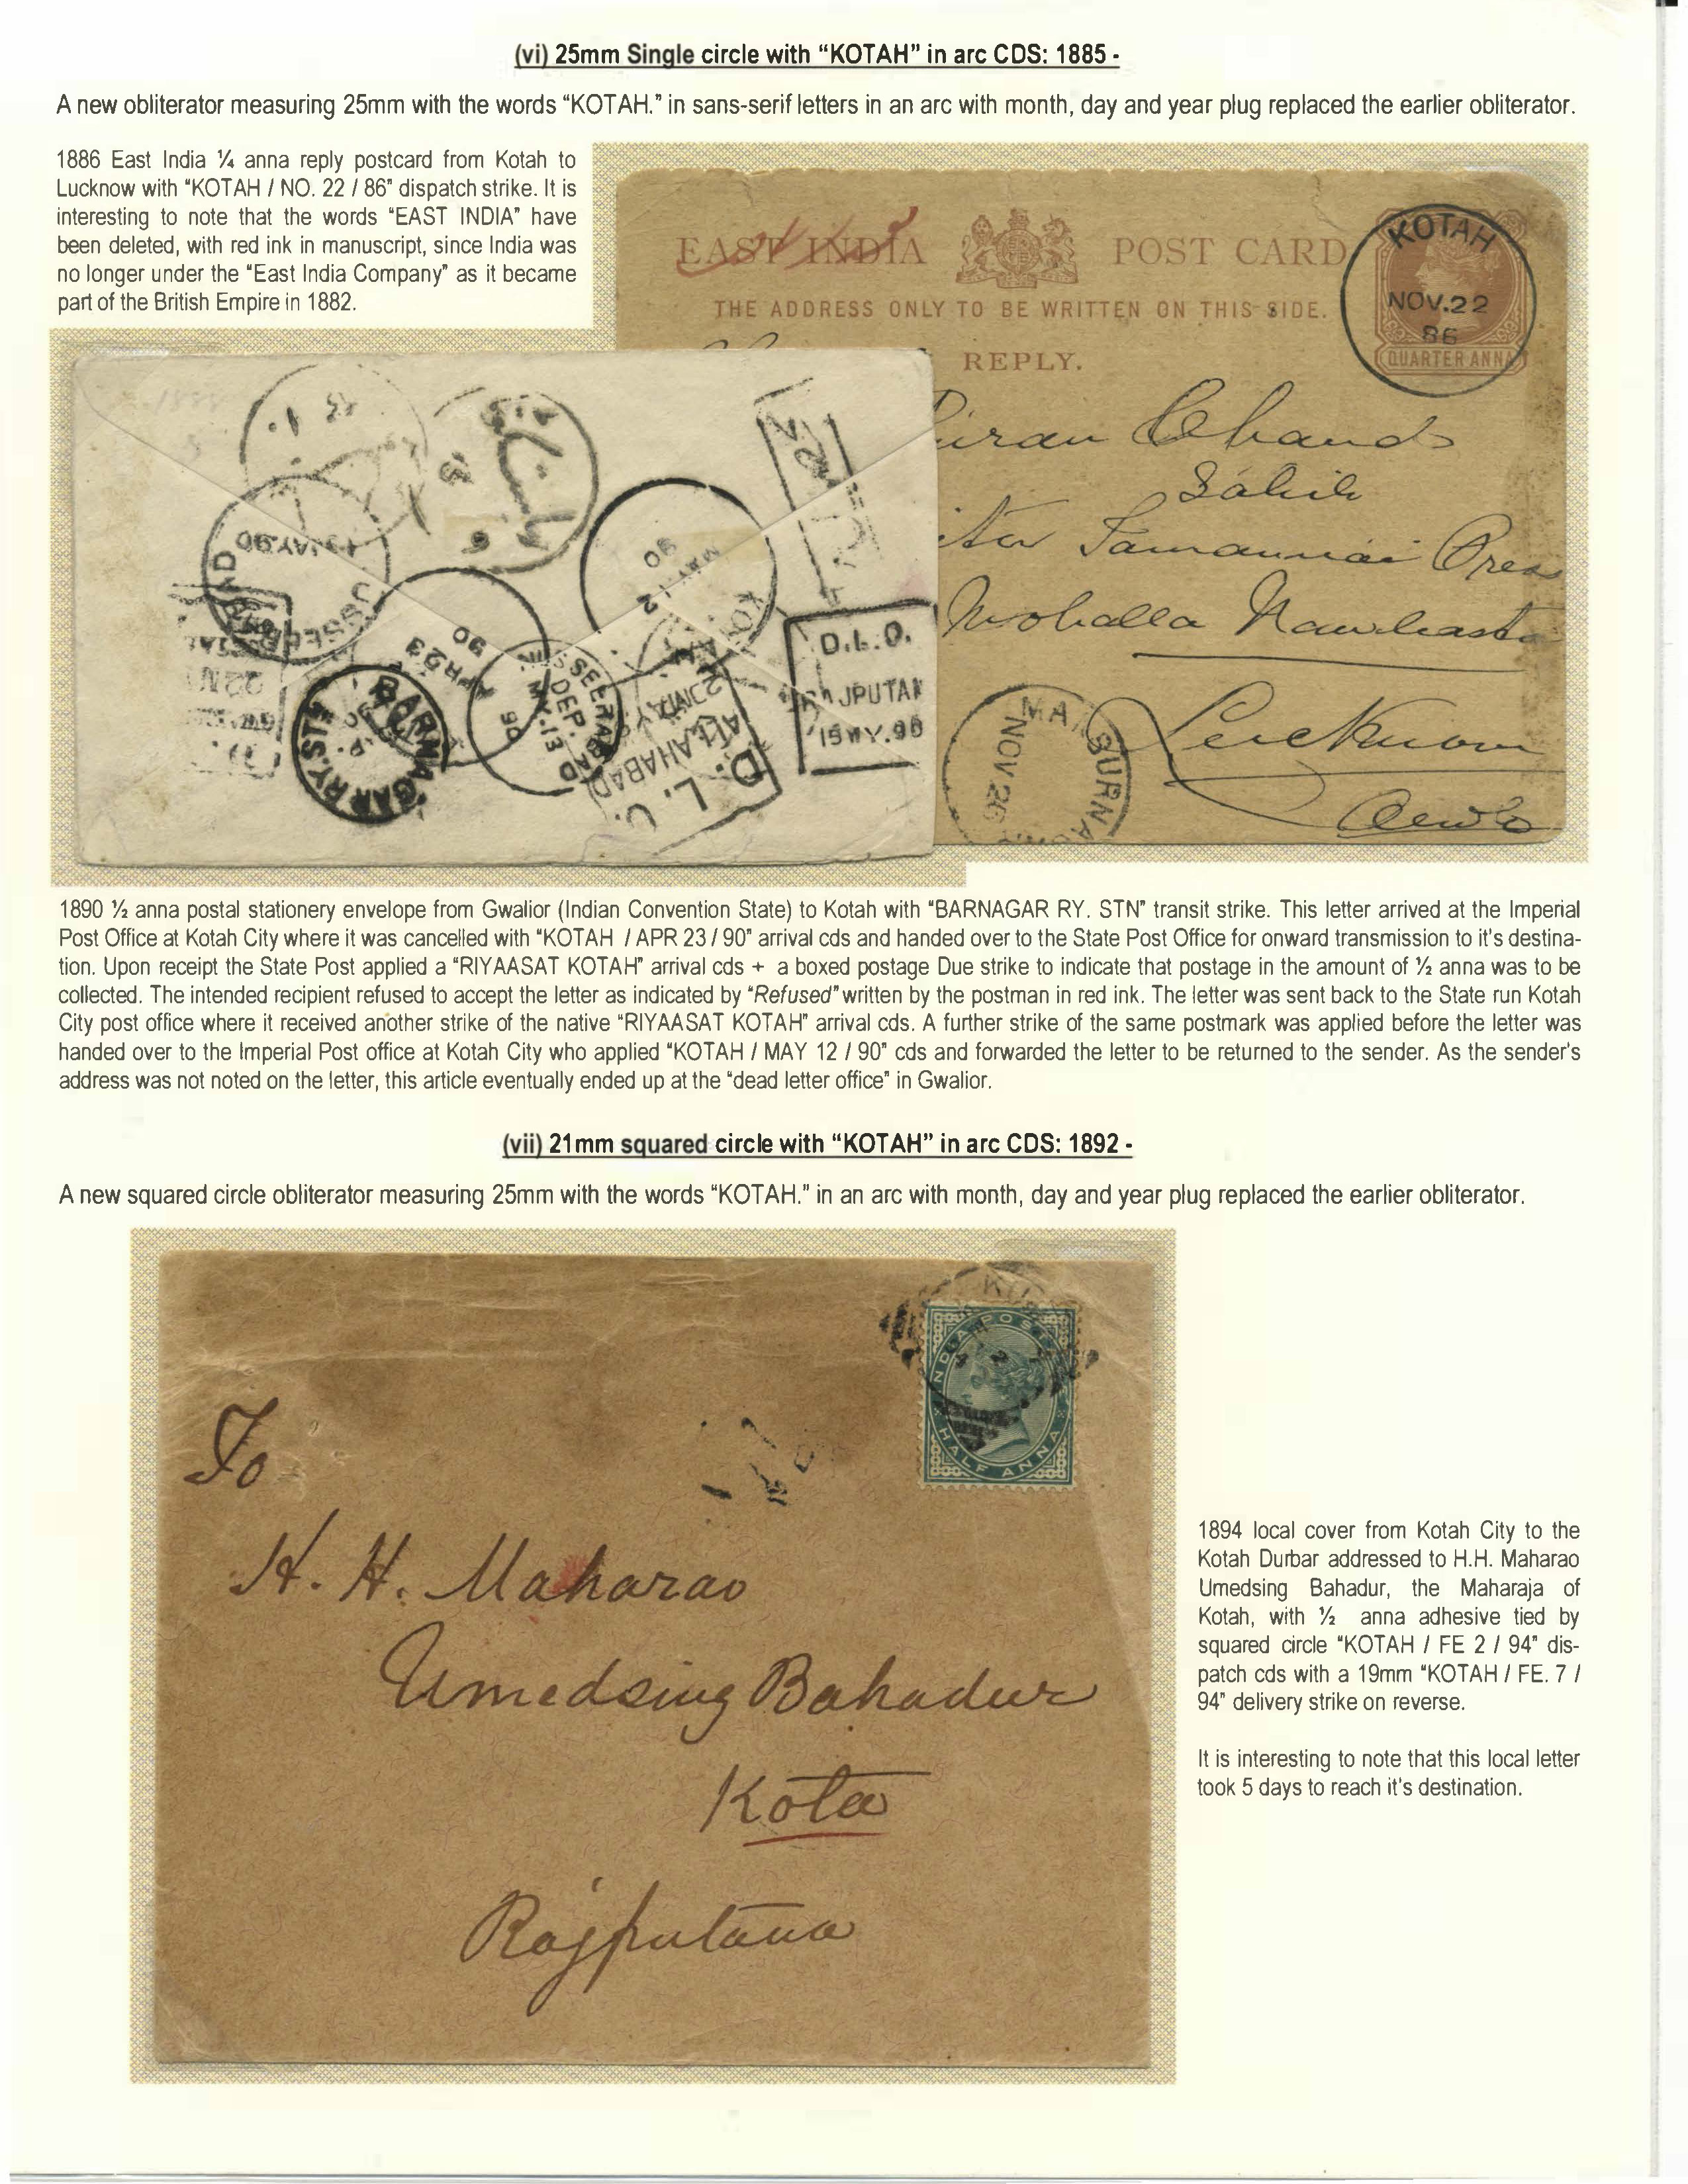 (vi) 25mm Single circle with “KOTAH” in arc CDS: 1885 -
A new obliterator measuring 25mm with the words “KOTAH.” in sans-serif letters in an arc with month, day and year plug replaced the earlier obliterator.
1886 East India ¼ anna reply postcard from Kotah to
Lucknow with “KOTAH / NO. 22 / 86” dispatch strike. It is
interesting to note that the words “EAST INDIA” have
been deleted, with red ink in manuscript, since India was
no longer under the “East India Company” as it became
part of the British Empire in 1882.
EAST INDIA POST CARD
THE ADDRESS ONLY TO BE WRITTEN ON THIS SIDE.
REPLY.
KOTAH
NOV.22
86
QUARTER ANNA
Chand
Sahib
Press
Mohalla
Lucknow
NOV 26
MAY 90
MAY 12
90
APR 23
90
BARNAGAR RY. STN
DEP.
MY.13
90
D.L.O.
ALLAHABAD
D.L.O.
RAJPUTAN
15 MY.90
1890 ½ anna postal stationery envelope from Gwalior (Indian Convention State) to Kotah with “BARNAGAR RY. STN” transit strike. This letter arrived at the Imperial
Post Office at Kotah City where it was cancelled with “KOTAH / APR 23 / 90” arrival cds and handed over to the State Post Office for onward transmission to it's destina-
tion. Upon receipt the State Post applied a “RIYAASAT KOTAH” arrival cds + a boxed postage Due strike to indicate that postage in the amount of ½ anna was to be
collected. The intended recipient refused to accept the letter as indicated by “Refused” written by the postman in red ink. The letter was sent back to the State run Kotah
City post office where it received another strike of the native “RIYAASAT KOTAH” arrival cds. A further strike of the same postmark was applied before the letter was
handed over to the Imperial Post office at Kotah City who applied “KOTAH / MAY 12 / 90” cds and forwarded the letter to be returned to the sender. As the sender's
address was not noted on the letter, this article eventually ended up at the “dead letter office” in Gwalior.
(vii) 21mm squared circle with “KOTAH” in arc CDS: 1892 -
A new squared circle obliterator measuring 25mm with the words “KOTAH.” in an arc with month, day and year plug replaced the earlier obliterator.
INDIA POSTAGE
HALF ANNA
To
H. H. Maharao
Umedsing Bahadur
Kota
Rajputana
1894 local cover from Kotah City to the
Kotah Durbar addressed to H.H. Maharao
Umedsing Bahadur, the Maharaja of
Kotah, with ½ anna adhesive tied by
squared circle “KOTAH / FE 2 / 94” dis-
patch cds with a 19mm “KOTAH / FE. 7 /
94” delivery strike on reverse.
It is interesting to note that this local letter
took 5 days to reach it's destination.